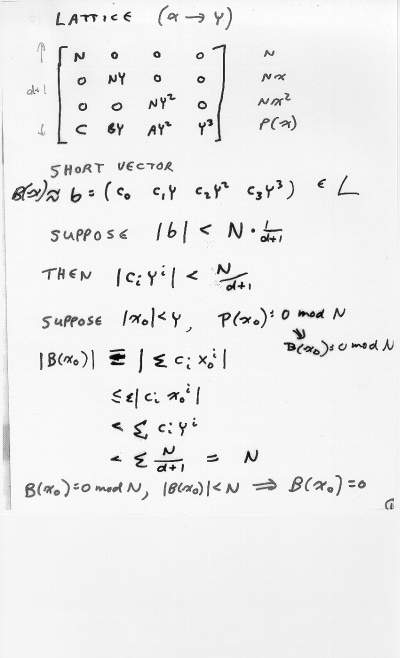 LATTICE (x → Y)
↑ d+1 ↓
N 0 0 0 N
0 NY 0 0 Nx
0 0 NY² 0 Nx²
C BY AY² Y³ P(x)
SHORT VECTOR
B(x) ≈ b = (c₀ c₁Y c₂Y² c₃Y³) ∈ L
SUPPOSE |b| < N · 1/d+1
THEN |cᵢ Yⁱ| < N/d+1
SUPPOSE |x₀| < Y, P(x₀) = 0 mod N
B(x₀) = 0 mod N
|B(x₀)| = | Σ cᵢ x₀ⁱ |
≤ Σ | cᵢ x₀ⁱ |
< Σ cᵢ Yⁱ
< Σ N/d+1 = N
B(x₀) = 0 mod N, |B(x₀)| < N ⟹ B(x₀) = 0